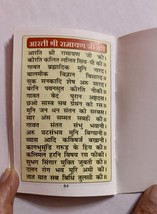 आरती श्री रामायण जी की
आरति श्री रामायण जी की।
कीरति कलित ललित सिय-पी की॥
गावत ब्रह्मादिक मुनि नारद।
बालमीक बिज्ञान बिसारद॥
सुक सनकादि शेष अरु सारद।
बरनि पवनसुत कीरति नीकी॥
गावत वेद पुरान अष्टदस।
छओ सास्त्र सब ग्रंथन को रस॥
मुनि जन धन संतन को सरबस।
सार अंस सम्मत सबही की॥
गावत संतत संभु भवानी।
अरु घटसंभव मुनि बिग्यानी॥
व्यास आदि कविबर्ज बखानी।
कागभुसुंडि गरुड़ के ही की॥
कलिमल हरनि विषय रस फीकी।
सुभग सिंगार मुक्ति जुबती की॥
दलन रोग भव मूरि अमी की।
तात मात सब बिधि तुलसी की॥